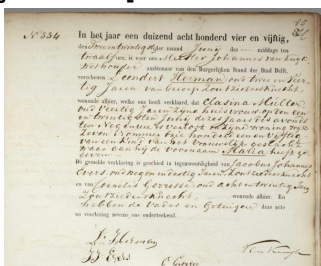 N° 334
In het jaar een duizend acht honderd vier en vijftig,
den Twee en twintigsten der maand Junij des middags ten
twaalf ure, is voor ons Meester Johannes van Kuyk,
Wethouder ambtenaar van den Burgerlijken Stand der Stad Delft,
verschenen Leendert Herman oud twee en veertig Jaren van beroep Loutzedersknecht,
wonende alhier, welke ons heeft verklaard, dat Clasina Muller,
oud Veertig Jaren Zyne huisvrouw op den een
en twintigsten Junij dezes jaars des avonds
ten Negen ure is verlost ten zyne woning wyk
Zeven Nommer
van een kind van het Vrouwelijk geslacht,
waar aan hij de voornaam Maria heeft ge
geven
De gemelde verklaring is geschied in tegenwoordigheid van Jacobus Johannes
Evers, oud negen en zestig Jaren,
en van Cornelis Gevers, oud acht en twintig Jaren
wonende alhier. En
hebben de Vader en Getuigen deze acte
na voorlezing nevens ons onderteekend.
L. Herman
J. J. Evers